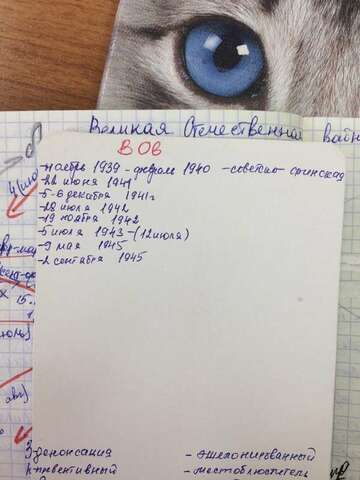 Великая Отечественная война
ВОВ
-ноябрь 1939 - февраль 1940 - советско - финская
-22 июня 1941
-5-6 декабря 1941г
-28 июля 1942
-19 ноября 1942
-5 июля 1943 - (12 июля)
-9 мая 1945
-2 сентября 1945
3-денонсация - эшелонированный
превентивный - местоблюститель